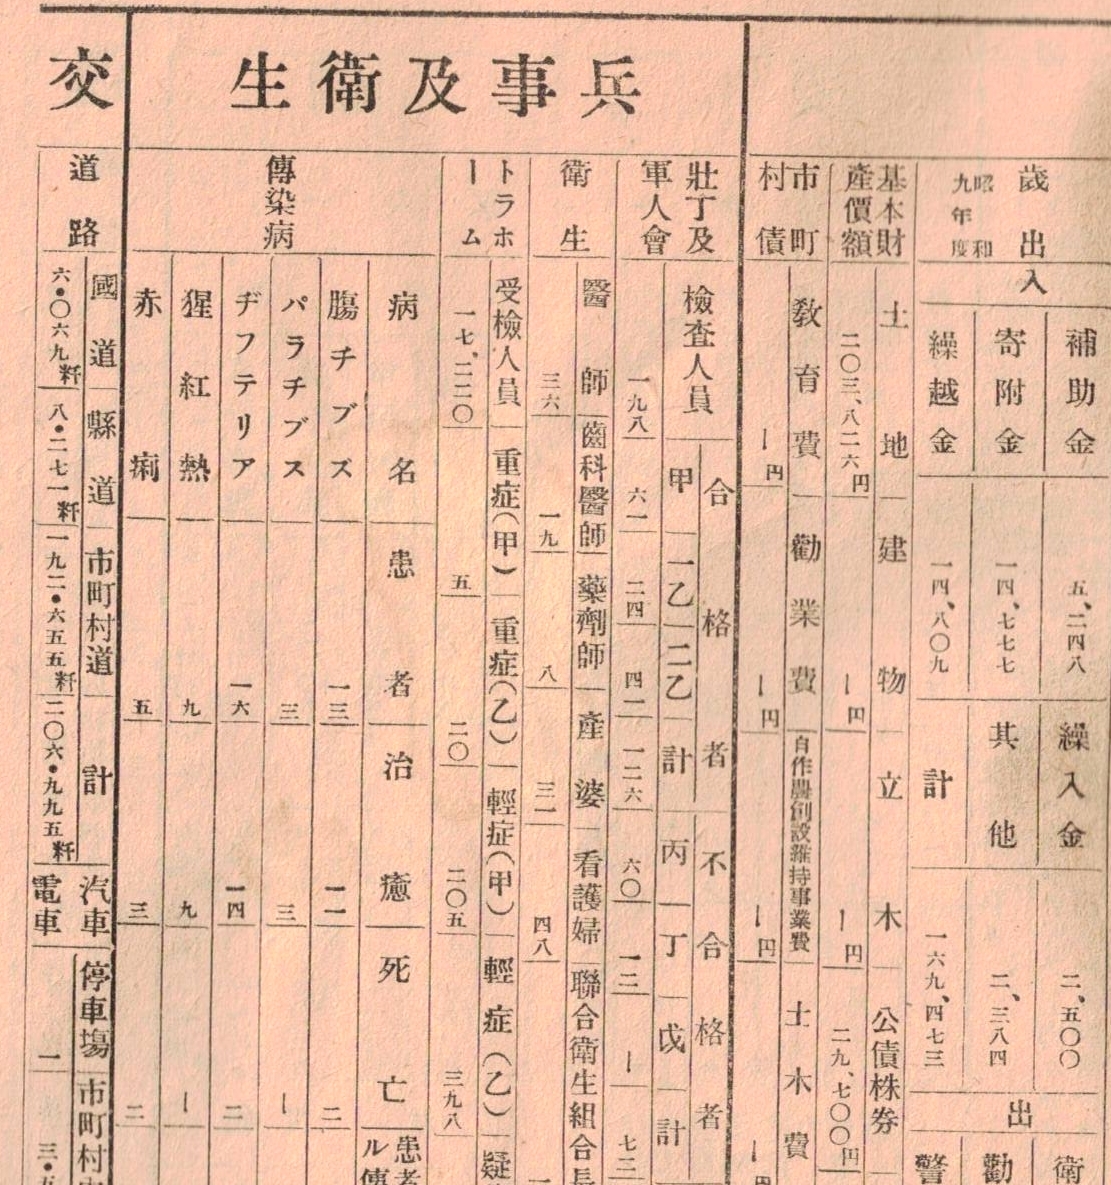 兵事及衛生
交
歳出入
昭和九年度
補助金
五、二四八
繰入金
二、五〇〇
寄附金
一四、七七七
其他
二、三八四
繰越金
一四、八〇九
計
一六九、四七三
出
衛
勸
警
基本財產價額
土地
二〇三、八二六円
建物
ー円
立木
ー円
公債株券
二九、七〇〇円
市町村債
教育費
ー円
勸業費
ー円
自作農創設維持事業費
ー円
土木費
ー円
壯丁及軍人會
檢査人員
一九八
合格者
甲
六一
一乙
二四
二乙
四一
計
一二六
不合格者
丙
六〇
丁
一二
戊
ー
計
七二
衛生
醫師
三六
齒科醫師
一九
藥劑師
八
產婆
三一
看護婦
四八
聯合衛生組合長
トラホーム
受檢人員
一七、二二〇
重症(甲)
五
重症(乙)
二〇
輕症(甲)
二〇五
輕症(乙)
三九八
疑
傳染病
病名
患者
治癒
死亡
患者
ル傳
腸チブス
一三
一一
二
パラチブス
三
三
ー
ヂフテリア
一六
一四
二
猩紅熱
九
九
ー
赤痢
五
三
二
道路
國道
六・〇六九粁
縣道
八・二七一粁
市町村道
一九二・六五五粁
計
二〇六・九九五粁
汽車電車
停車場
一
市町村
三・五